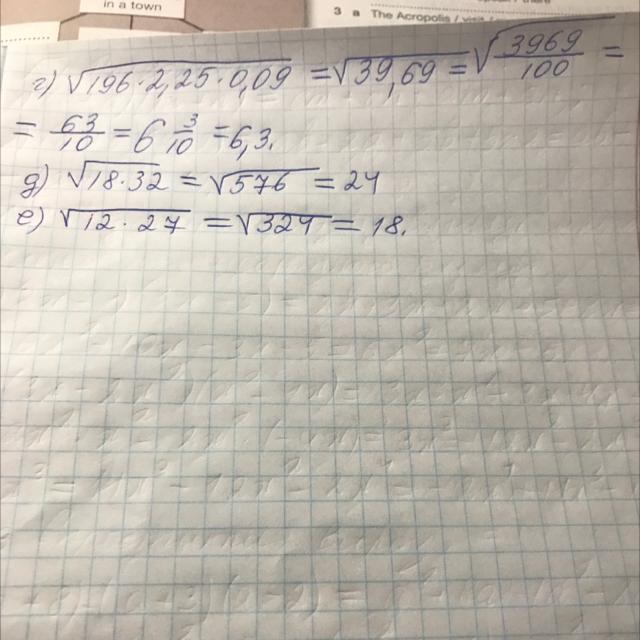 in a town
3 a The Acropolis /
г) √196·2,25·0,09 = √39,69 = √3969/100 =
= 63/10 = 6 3/10 = 6,3.
д) √18·32 = √576 = 24
е) √12·27 = √324 = 18.